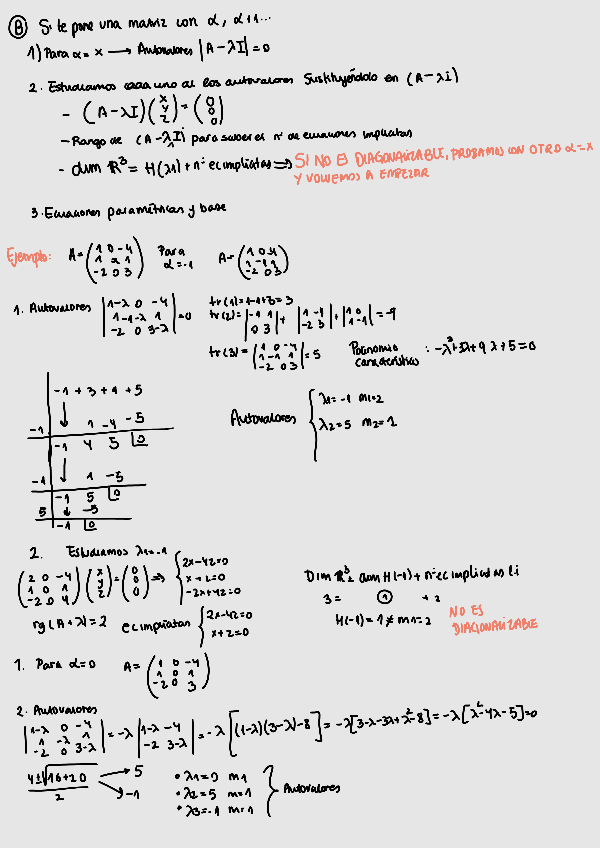 B Si te pone una matriz con α, α+1...
1) Para α = x → Autovalores |A - λI| = 0
2. Estudiamos cada uno de los autovalores sustituyéndolo en (A - λI)
- (A - λI) (x y z) = (0 0 0)
- Rango de (A - λI) para saber el nº de ecuaciones implícitas
- dim R³ = H(λ1) + nº ec implícitas ⇒ SI NO ES DIAGONALIZABLE, PROBAMOS CON OTRO α = x
Y VOLVEMOS A EMPEZAR
3. Ecuaciones paramétricas y base
Ejemplo: A = (1 0 -4 / 1 α 1 / -2 0 3) Para α = -1 A = (1 0 -4 / 1 -1 1 / -2 0 3)
1. Autovalores |1-λ 0 -4 / 1 -1-λ 1 / -2 0 3-λ| = 0
tr(1) = -1+1+3 = 3
tr(2) = |-1 1 / 0 3| + |1 -4 / -2 3| + |1 0 / 1 -1| = -9
tr(3) = |1 0 -4 / 1 -1 1 / -2 0 3| = 5 Polinomio característico : -λ³+3λ²+9λ+5=0
-1 +3 +9 +5
-1 1 -4 -5
-1 4 5 0
-1 1 -5
-1 5 0
5 -5
-1 0
Autovalores { λ1 = -1 m1 = 2
λ2 = 5 m2 = 1
2. Estudiamos λ1 = -1
(2 0 -4 / 1 0 1 / -2 0 4) (x y z) = (0 0 0) ⇒ { 2x-4z=0
x+z=0
-2x+4z=0
rg(A+λ) = 2 ec implícitas { 2x-4z=0
x+z=0
Dim R³ = dim H(-1) + nº ec implícitas li
3 = 1 + 2
H(-1) = 1 ≠ m1 = 2 NO ES
DIAGONALIZABLE
1. Para α=0 A = (1 0 -4 / 1 0 1 / -2 0 3)
2. Autovalores
|1-λ 0 -4 / 1 -λ 1 / -2 0 3-λ| = -λ |1-λ -4 / -2 3-λ| = -λ [(1-λ)(3-λ)-8] = -λ[3-λ-3λ+λ²-8] = -λ[λ²-4λ-5]=0
4±√16+20 / 2 → 5
→ -1
• λ1=0 m1
• λ2=5 m=1
• λ3=-1 m=1 } Autovalores